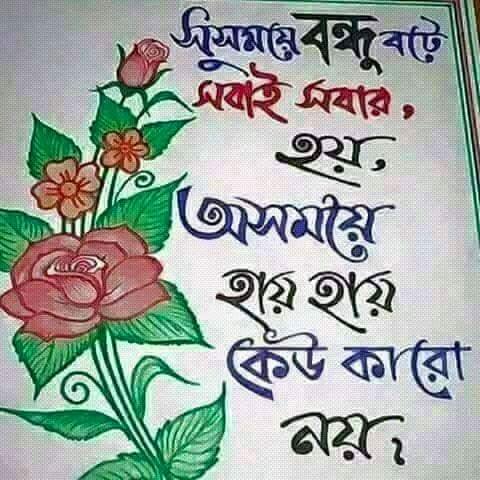 সুসময়ে বন্ধু বটে
সবাই সবার,
হয়,
অসময়ে
হায় হায়
কেউ কারো
নয়,